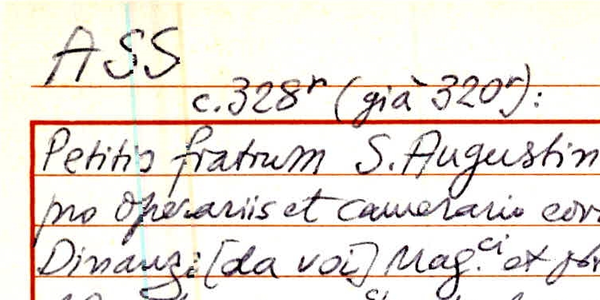 ASS
c. 328r (già 320r):
Petitio fratrum S. Augustin
pro operariis et camerario
Dinanzi [da voi] Mag.ci et